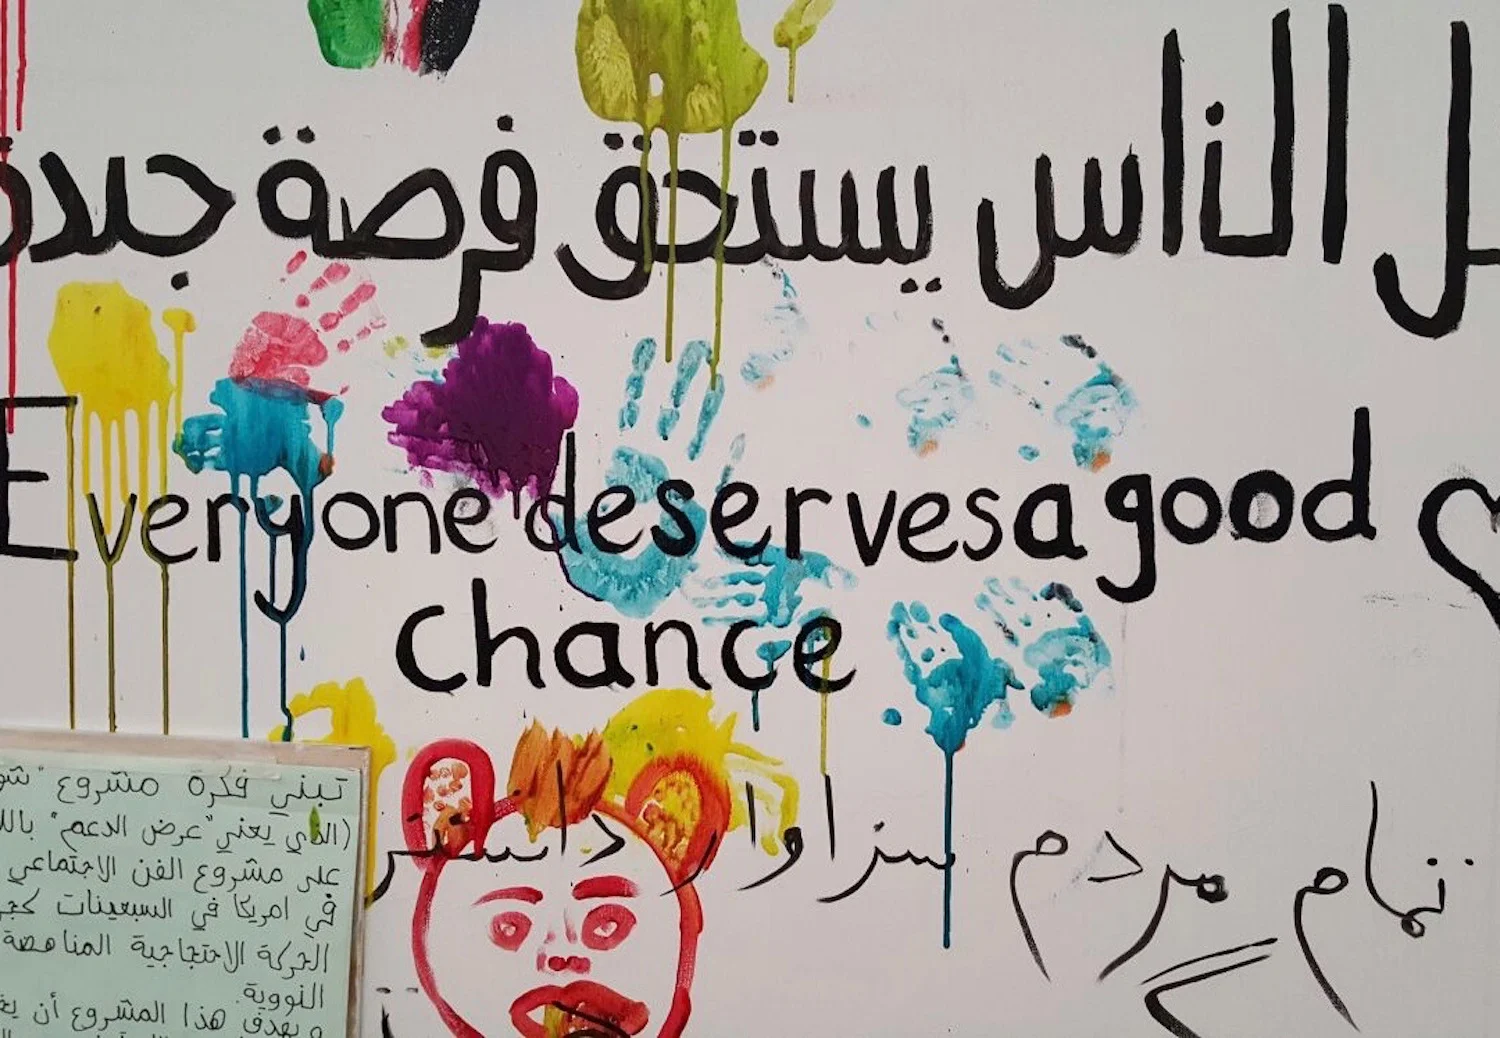 ل الناس يستحق فرصة جىدة
Everyone deserves a good
chance
تمام مردم سزاوار داشتن
تبني فكرة مشروع "شو
(الذي يعني "عرض الدعم" بالل
على مشروع الفن الاجتماعي
في امريكا في السبعينات كجز
الحركة الاحتجاجية المناهضة
النووية.
و يهدف هذا المشروع أن يخ